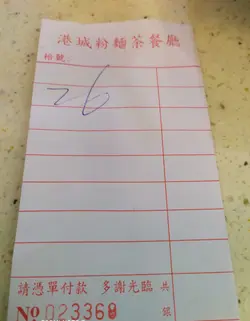 港城粉麵茶餐廳
枱號
26
請憑單付款 多謝光臨 共銀
No 023369